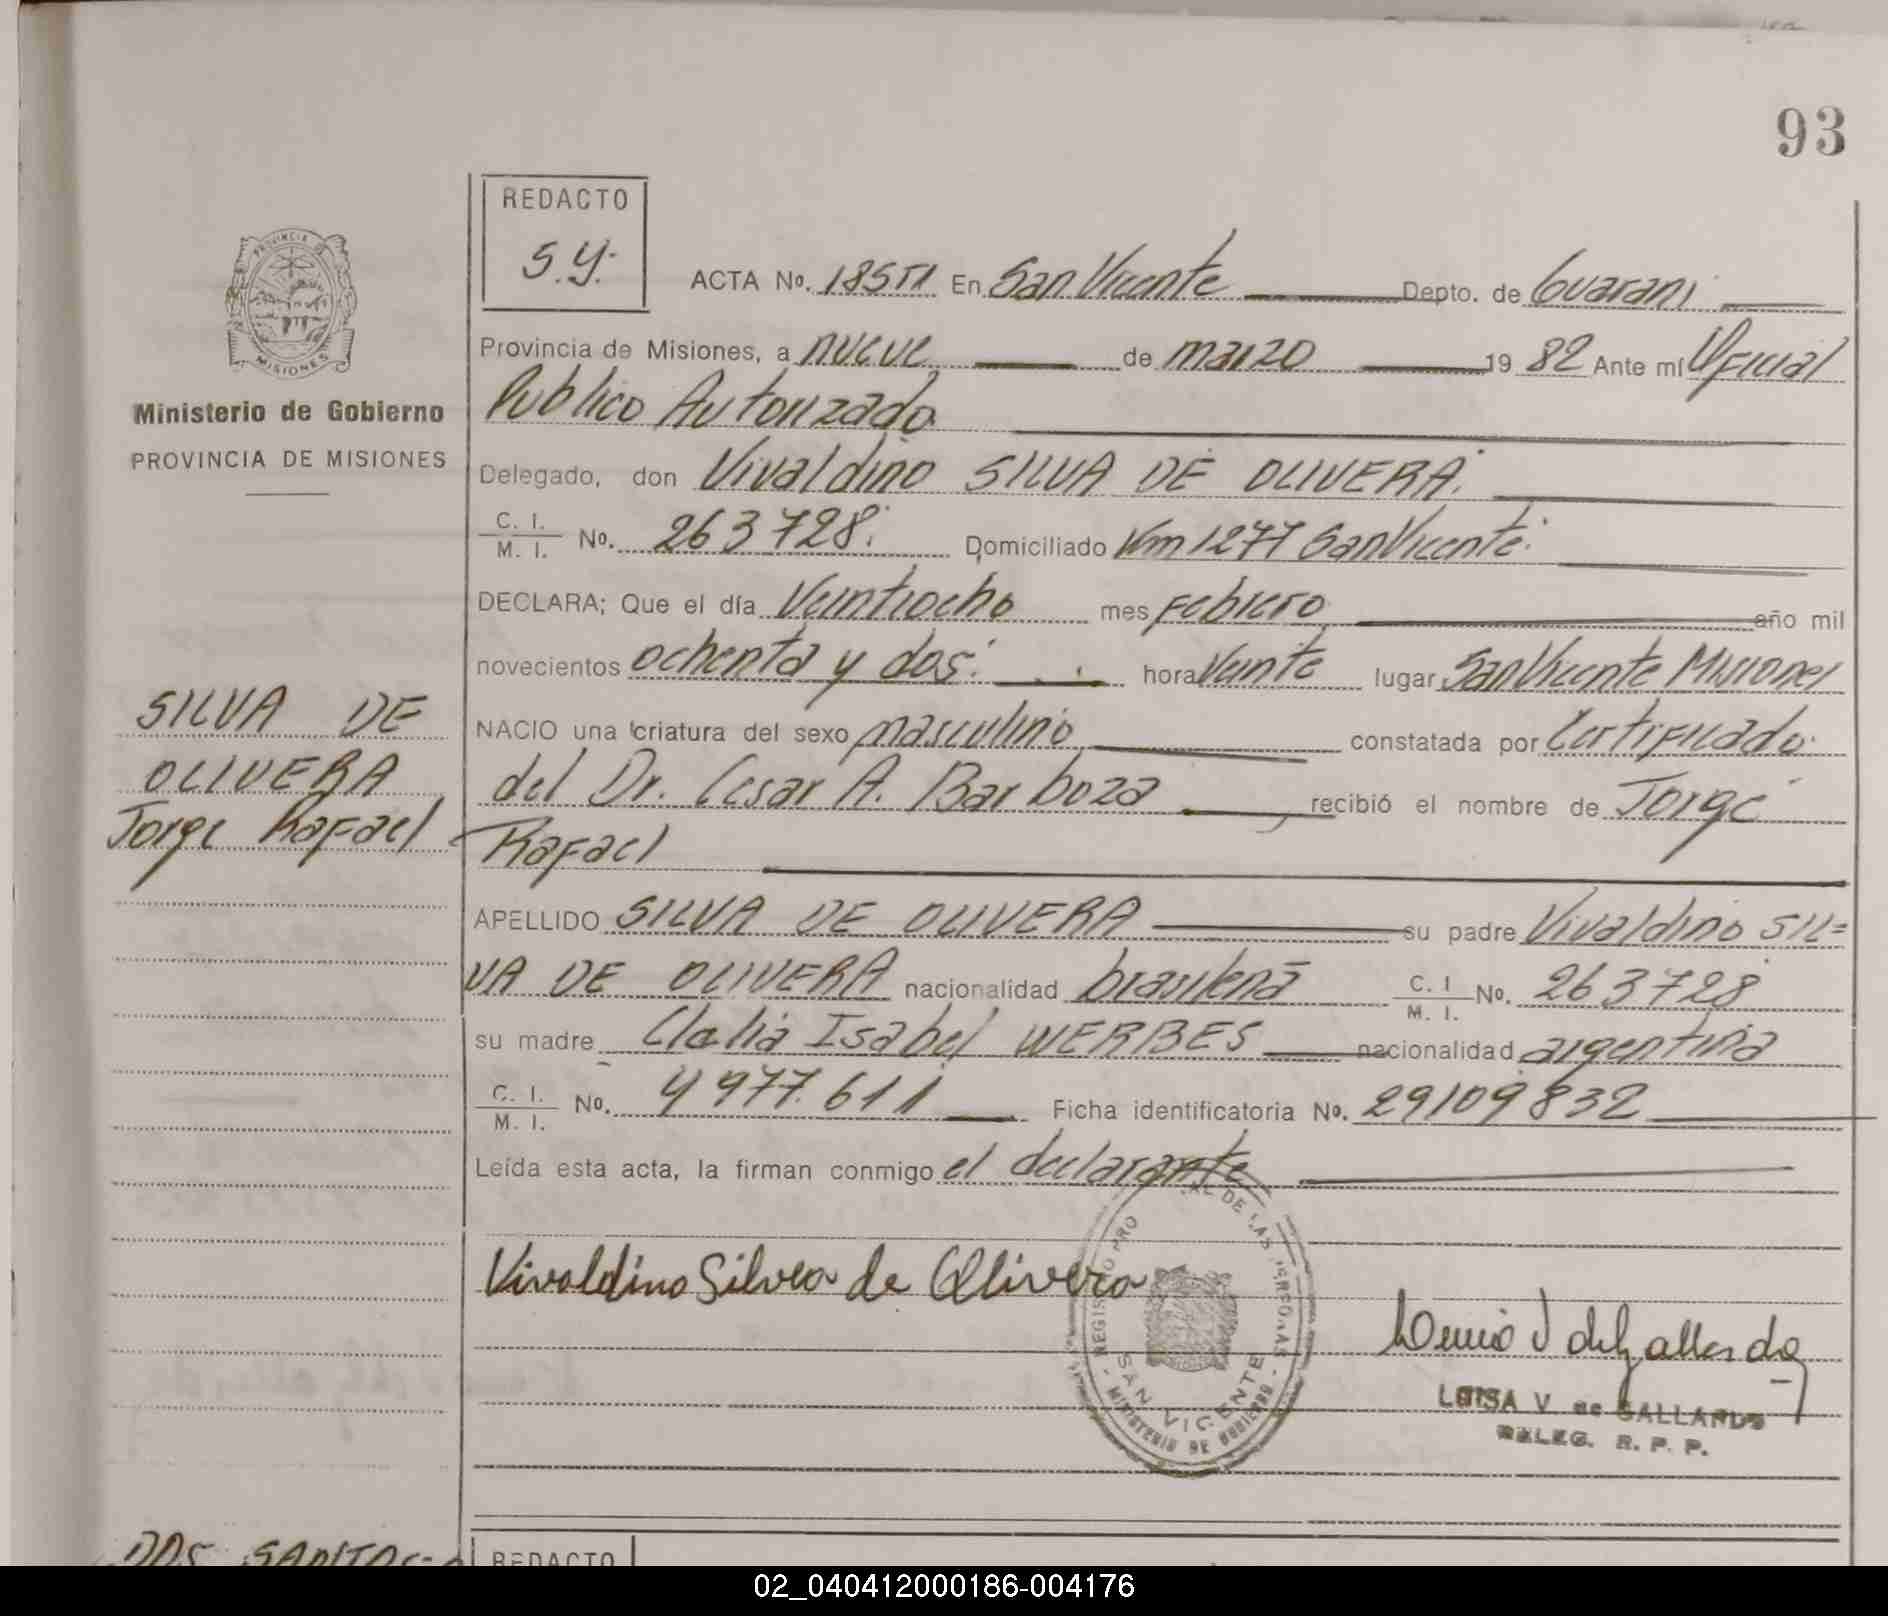 93
REDACTO
S.Y.
PROVINCIA DE
MISIONES
Ministerio de Gobierno
PROVINCIA DE MISIONES
ACTA No. 185 En San Vicente Depto. de Guarani
Provincia de Misiones, a nueve de marzo 19 82 Ante mí Oficial
Publico Autorizado
Delegado, don Vivaldino SILVA DE OLIVERA.
C. I.
M. I. No. 263728. Domiciliado Km 1277 San Vicente.
DECLARA; Que el día Veintiocho mes Febrero año mil
novecientos ochenta y dos. hora Veinte lugar San Vicente Misiones
NACIO una criatura del sexo masculino constatada por Certificado
del Dr. Cesar A. Barboza recibió el nombre de Jorge
Rafael
SILVA DE
OLIVERA
Jorge Rafael
APELLIDO SILVA DE OLIVERA su padre Vivaldino SIL=
VA DE OLIVERA nacionalidad brasileña C. I
M. I. No. 263728
su madre Clelia Isabel WERBES nacionalidad argentina
C. I.
M. I. No. 4977.611 Ficha identificatoria No. 29109832
Leída esta acta, la firman conmigo el declarante
Vivaldino Silva de Olivera
REGISTRO PRO DE LAS PERSONAS
SAN VICENTE
MINISTERIO DE GOBIERNO
LUISA V. de GALLARDO
DELEG. R. P. P.
DOS SANTOS
REDACTO
02_040412000186-004176